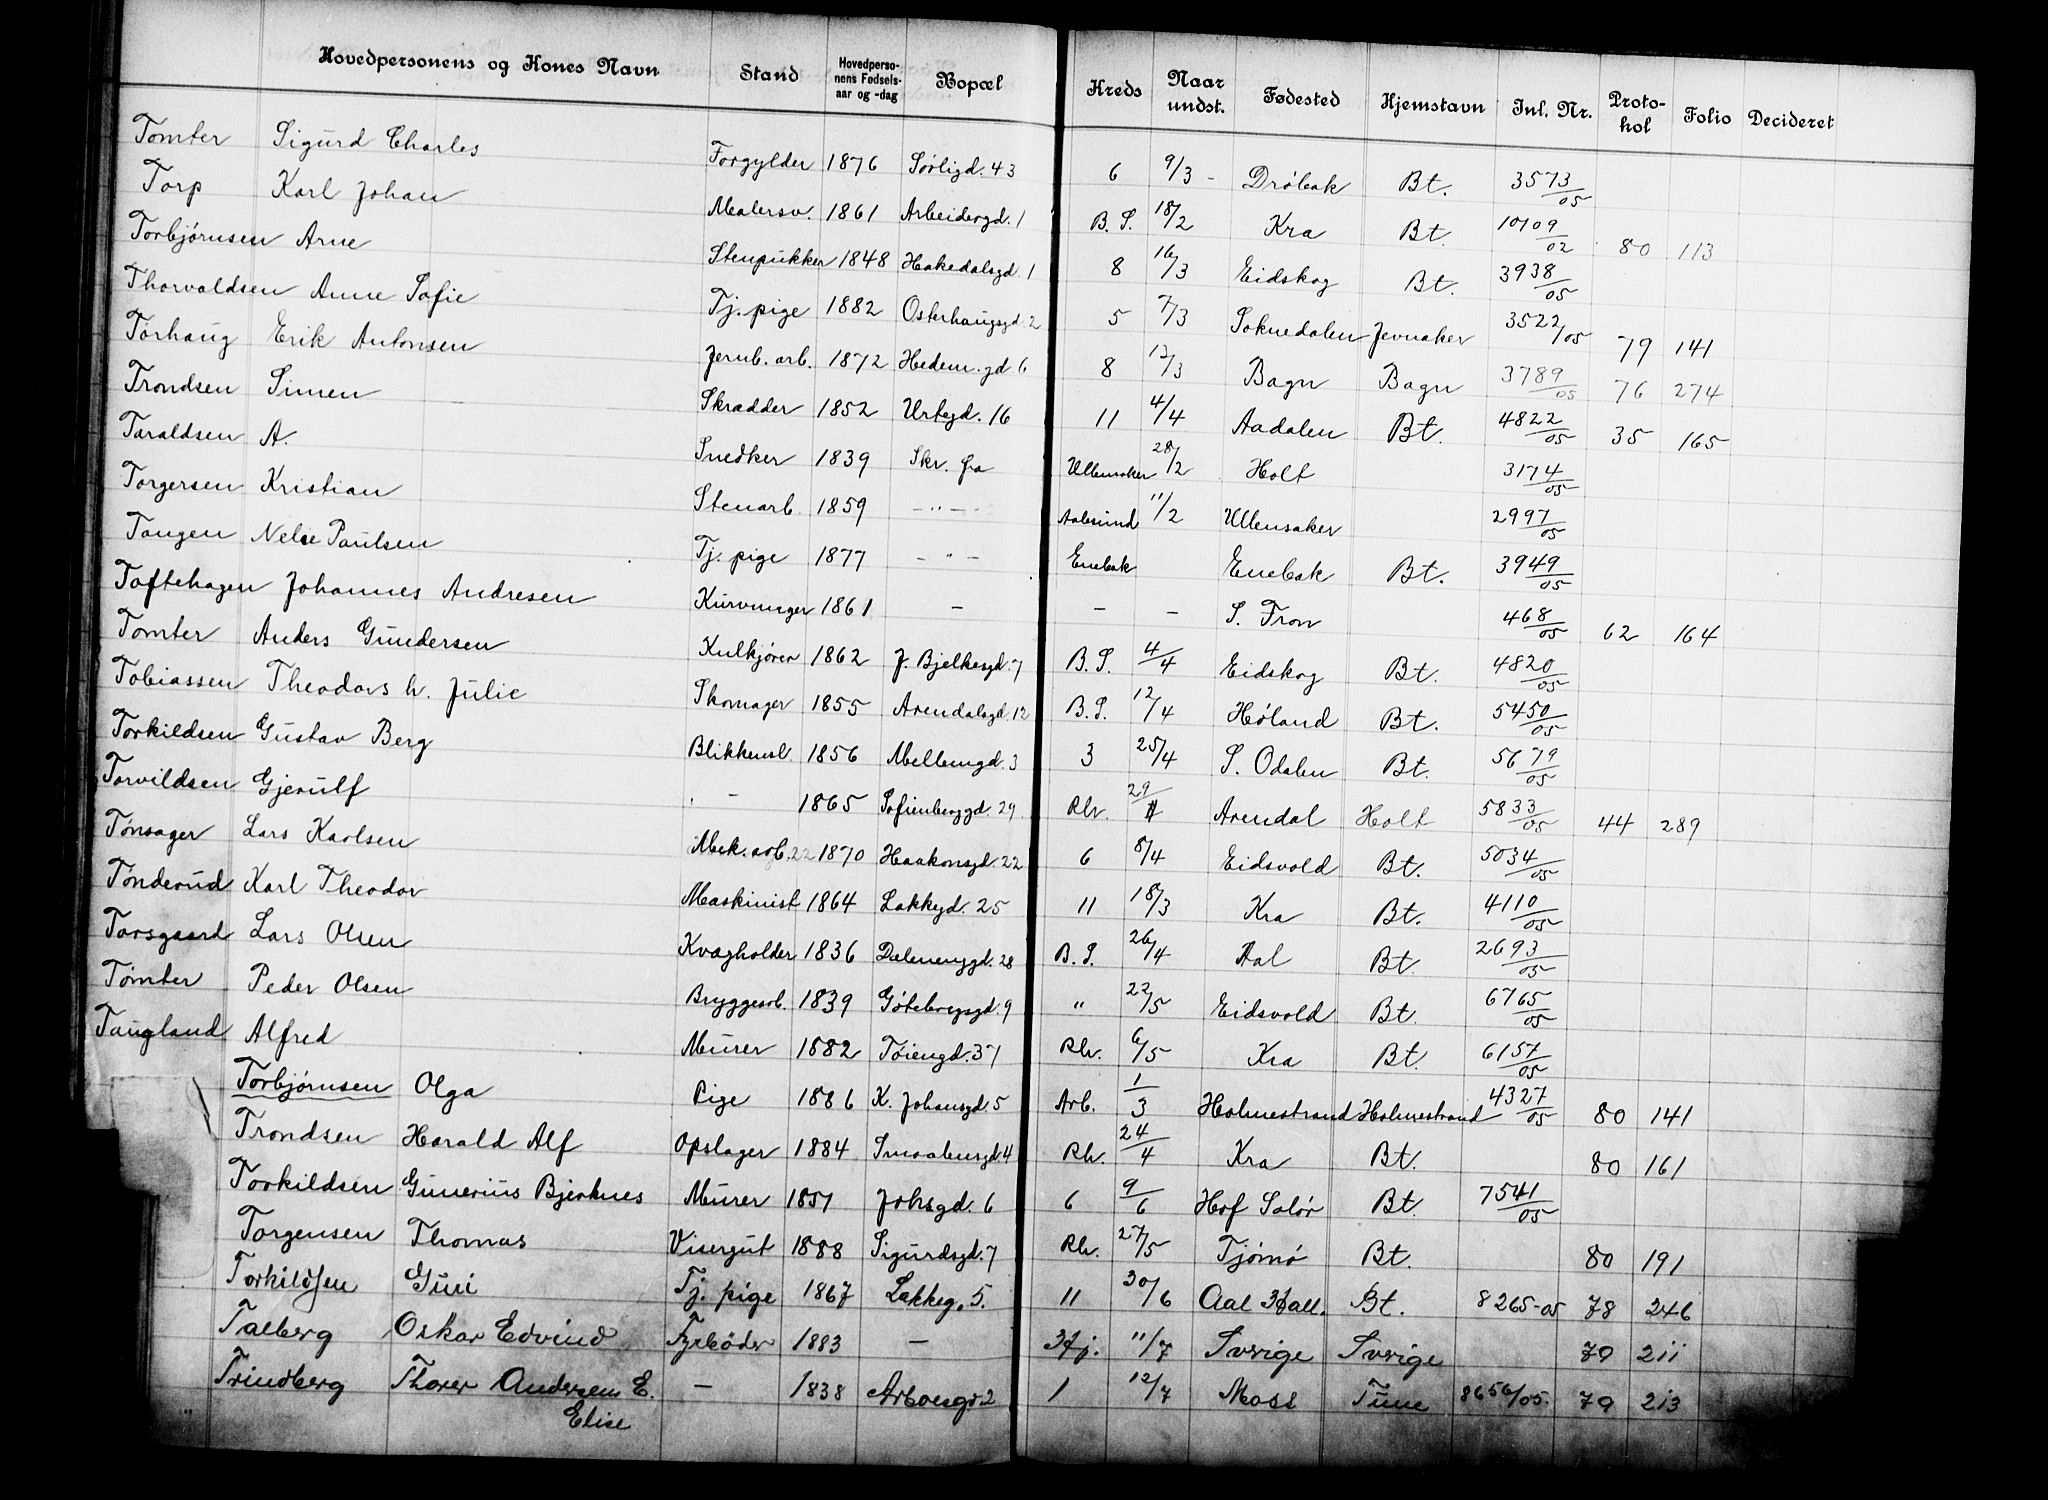 Hovedpersonens og Kones Navn Stand Hovedpersonens Fødselsaar og -dag Bopæl Kreds Naar undst. Fødested Hjemstavn Inl. Nr. Protokol Folio Decideret
Tomter Sigurd Charles Forgylder 1876 Sørligd. 43 6 9/3 - Drøbak Bt. 3573/05
Torp Karl Johan Malersv. 1861 Arbeidergd. 1 B. S. 18/2 Kra Bt. 10709/02 80 113
Torbjørnsen Arne Stenpukker 1848 Hakedalsgd 1 8 16/3 Eidskog Bt. 3938/05
Thorvaldsen Anne Sofie Tj. pige 1882 Osterhaugsgd. 2 5 7/3 Soknedalen Jevnaker 3522/05 79 141
Torhaug Erik Antonsen Jernb. arb. 1872 Hedem. gd 6 8 12/3 Bagn Bagn 3789/05 76 274
Trondsen Simen Skrædder 1852 Urtegd. 16 11 4/4 Aadalen Bt. 4822/05 35 165
Taraldsen A. Snedker 1839 Skr. fra Ullensaker 28/2 Holt 3174/05
Torgersen Kristian Stenarb. 1859 - " - Aalesund 11/2 Ullensaker 2997/05
Tangen Nelse Paulsen Tj. pige 1877 - " - Enebak Enebak Bt. 3949/05
Toftehagen Johannes Andresen Kurvmager 1861 - - - S. Fron 468/05 62 164
Tomter Anders Gundersen Kulkjører 1862 J. Bjelkesgd. 7 B. S. 4/4 Eidskog Bt. 4820/05
Tobiassen Theodors h. Julie Skomager 1855 Arendalsgd. 12 B. S. 12/4 Høland Bt. 5450/05
Torkildsen Gustav Berg Blikkensl. 1856 Mellemgd. 3 3 25/4 S. Odalen Bt. 5679/05
Torvildsen Gjerulf - 1865 Sofienberggd. 29 Rh. 29/4 Arendal Holt 5833/05 44 289
Tønsager Lars Karlsen Mek. arb. 22 1870 Haakonsgd. 22 6 8/4 Eidsvold Bt. 5034/05
Tønderud Karl Theodor Maskinist 1864 Lakkegd. 25 11 18/3 Kra Bt. 4110/05
Torsgaard Lars Olsen Kvægholder 1836 Dælenenggd. 28 B. S. 26/4 Aal Bt. 2693/05
Tømter Peder Olsen Bryggearb. 1839 Gøteborgsgd. 9 " 22/5 Eidsvold Bt. 6765/05
Taugland Alfred Murer 1882 Tøiengd. 37 Rh. 6/5 Kra Bt. 6157/05
Torbjørnsen Olga Pige 1886 K. Johansgd. 5 Arb. 1/3 Holmestrand Holmestrand 4327/05 80 141
Trondsen Harald Alf Opslager 1884 Smaalensgd 4 Rh. 24/4 Kra Bt. 80 161
Torkildsen Gunerius Bjerknes Murer 1851 Johsgd. 6 6 9/6 Hof Solør Bt. 7541/05
Torgensen Thomas Visergut 1888 Sigurdsgd. 7 Rh. 27/5 Tjømø Bt. 80 191
Torkildsen Guri Tj. pige 1867 Lakkeg. 5. 11 30/6 Aal Hall. Bt. 8265-05 78 246
Talberg Oskar Edvind Fyrbøder 1883 - Hj. 11/7 Sverige Sverige 79 211
Trindberg Thorer Andersens E. - 1838 Arboesgd. 2 1 12/7 Moss Tune 8656/05. 79 213
Elise